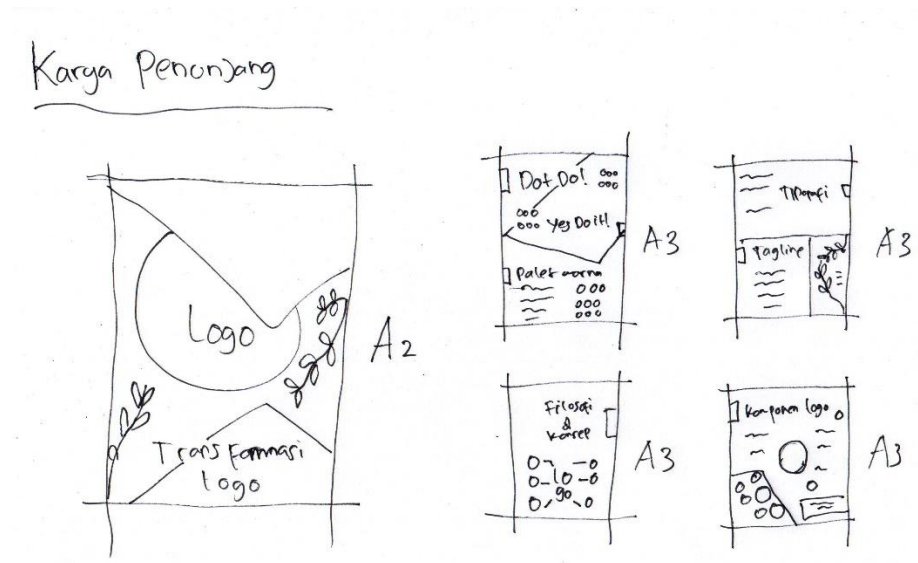 Karya Penunjang
Logo
Transformasi
logo
A2
Dot Do!
Yes Do it!
Palet warna
A3
Tipografi
Tagline
A3
Filosofi
&
Konsep
LO
go
A3
Komponen logo
A3